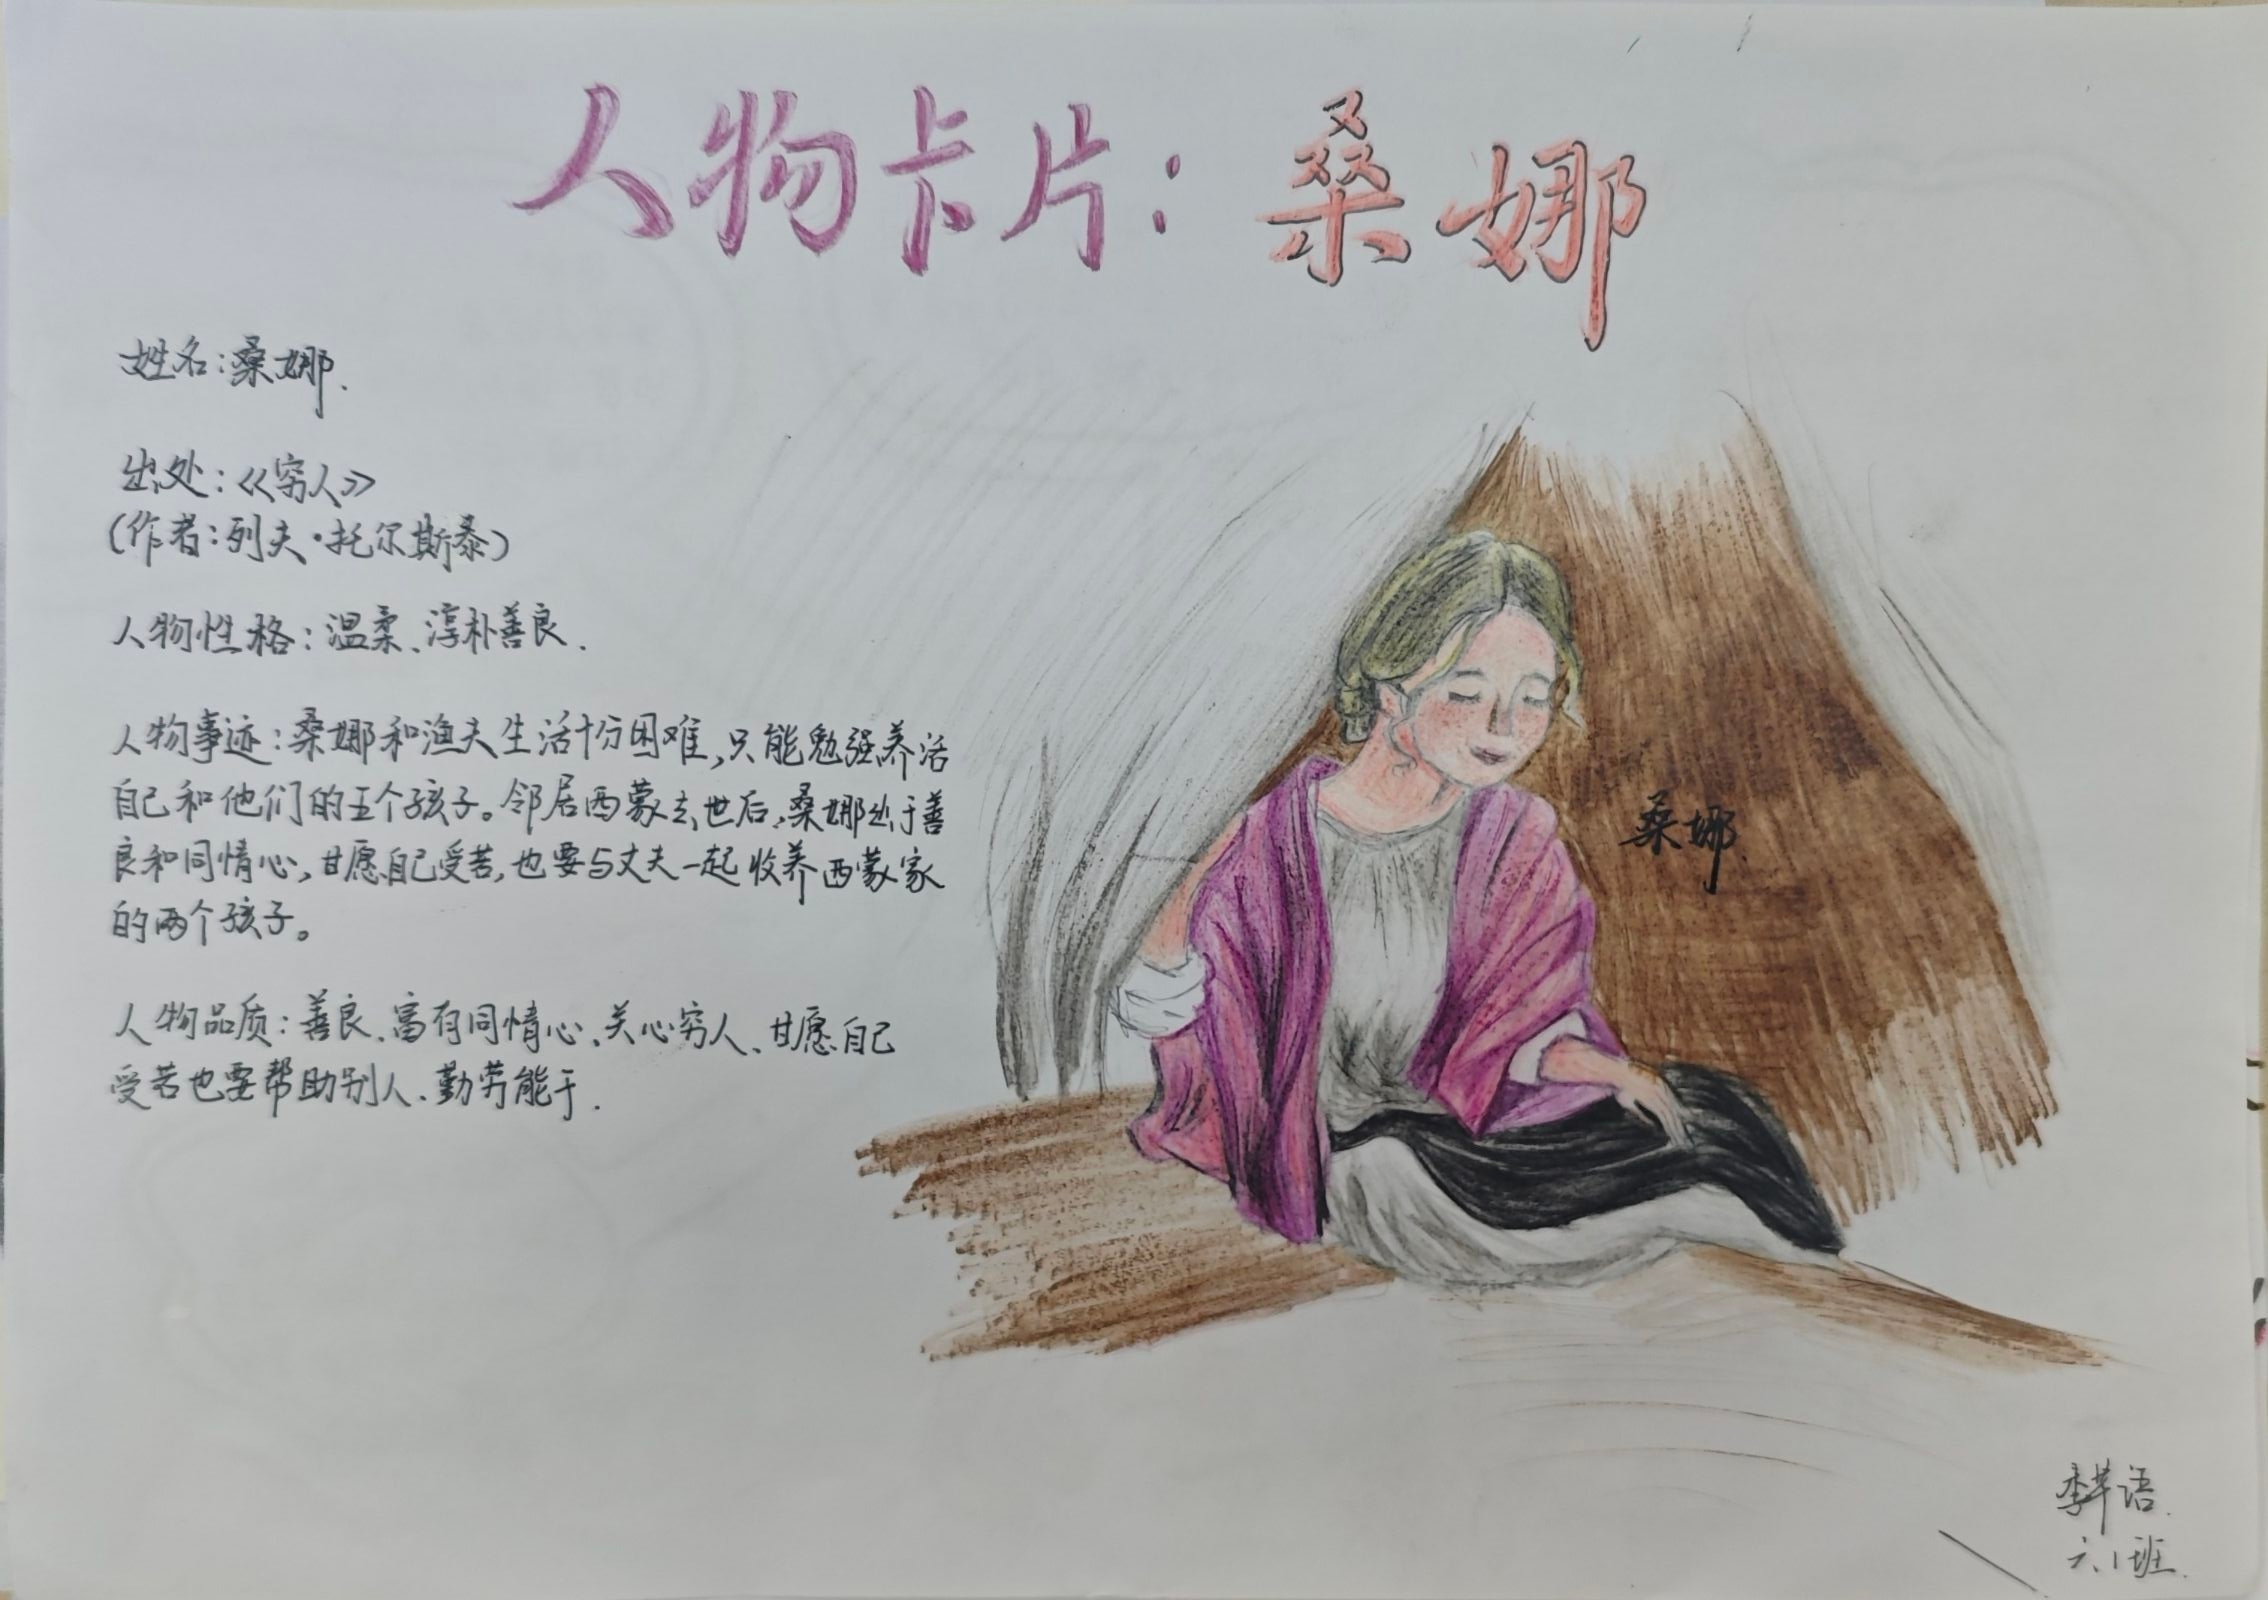 人物卡片：桑娜
姓名：桑娜.
出处：《穷人》
（作者：列夫·托尔斯泰）
人物性格：温柔、淳朴善良.
人物事迹：桑娜和渔夫生活十分困难，只能勉强养活
自己和他们的五个孩子。邻居西蒙去世后，桑娜出于善
良和同情心，甘愿自己受苦，也要与丈夫一起收养西蒙家
的两个孩子。
桑娜.
人物品质：善良、富有同情心、关心穷人、甘愿自己
受苦也要帮助别人、勤劳能干.
语.
六.1班.